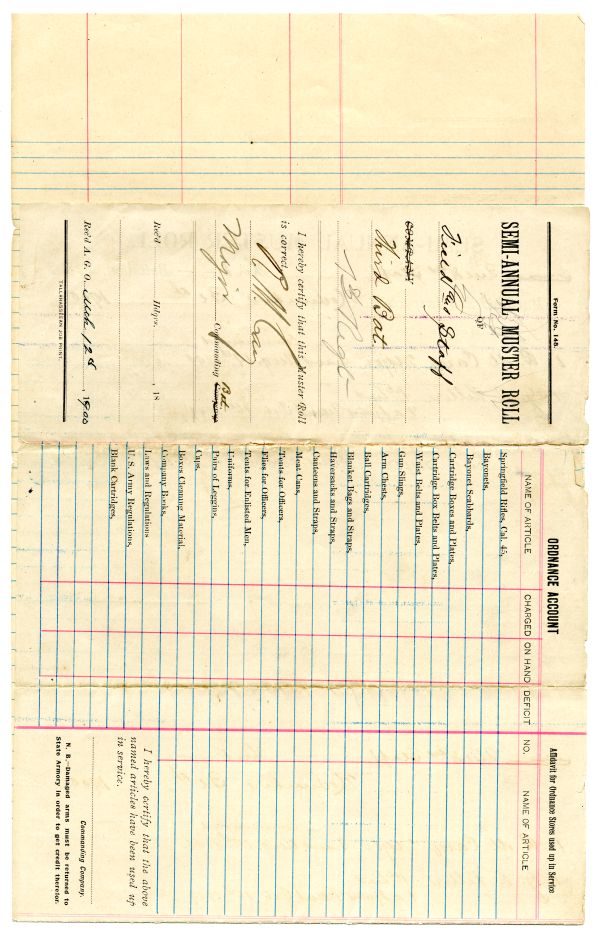 Form No. 145.
SEMI-ANNUAL MUSTER ROLL
OF
Field and Staff
COMPANY
Third Bat.
1st Regt
I hereby certify that this Muster Roll
is correct.
Major Commanding Company Bat
Rec'd Hdqrs. , 18
Rec'd A. G. O. Mch 12th , 1900
TALLAHASSEEAN JOB PRINT.
ORDNANCE ACCOUNT
NAME OF ARTICLE CHARGED ON HAND DEFICIT
Springfield Rifles, Cal. 45,
Bayonets,
Bayonet Scabbards,
Cartridge Boxes and Plates,
Cartridge Box Belts and Plates,
Waist Belts and Plates,
Gun Slings,
Arm Chests,
Ball Cartridges,
Blanket Bags and Straps,
Haversacks and Straps,
Canteens and Straps,
Meat Cans,
Tents for Officers,
Flies for Officers,
Tents for Enlisted Men,
Uniforms,
Pairs of Leggins,
Caps,
Boxes Cleaning Material,
Company Books,
Laws and Regulations
U. S. Army Regulations,
Blank Cartridges,
Affidavit for Ordnance Stores used up in Service
NO. NAME OF ARTICLE
I hereby certify that the above
named articles have been used up
in service.
Commanding Company.
N. B.—Damaged arms must be returned to
State Armory in order to get credit therefor.